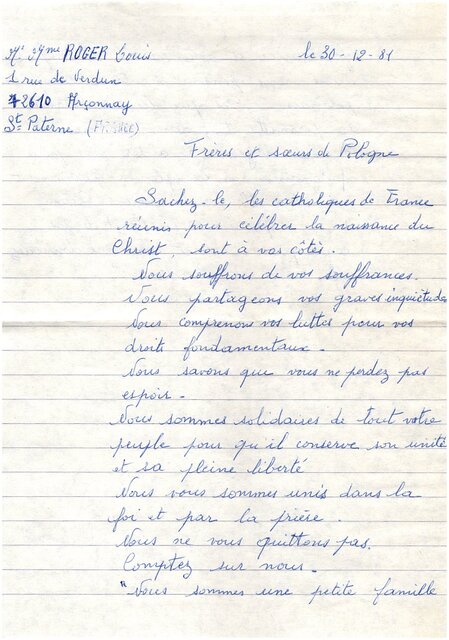 Mr Mme ROGER Louis
le 30-12-81
1 rue de Verdun
72610 Arçonnay
St Paterne (FRANCE)
Frères et sœurs de Pologne
Sachez-le, les catholiques de France
réunis pour célébrer la naissance du
Christ, sont à vos côtés.
Nous souffrons de vos souffrances.
Nous partageons vos graves inquiétudes
Nous comprenons vos luttes pour vos
droits fondamentaux.
Nous savons que vous ne perdez pas
espoir.
Nous sommes solidaires de tout votre
peuple pour qu'il conserve son unité
et sa pleine liberté
Nous vous sommes unis dans la
foi et par la prière.
Nous ne vous quittons pas.
Comptez sur nous.
"Nous sommes une petite famille